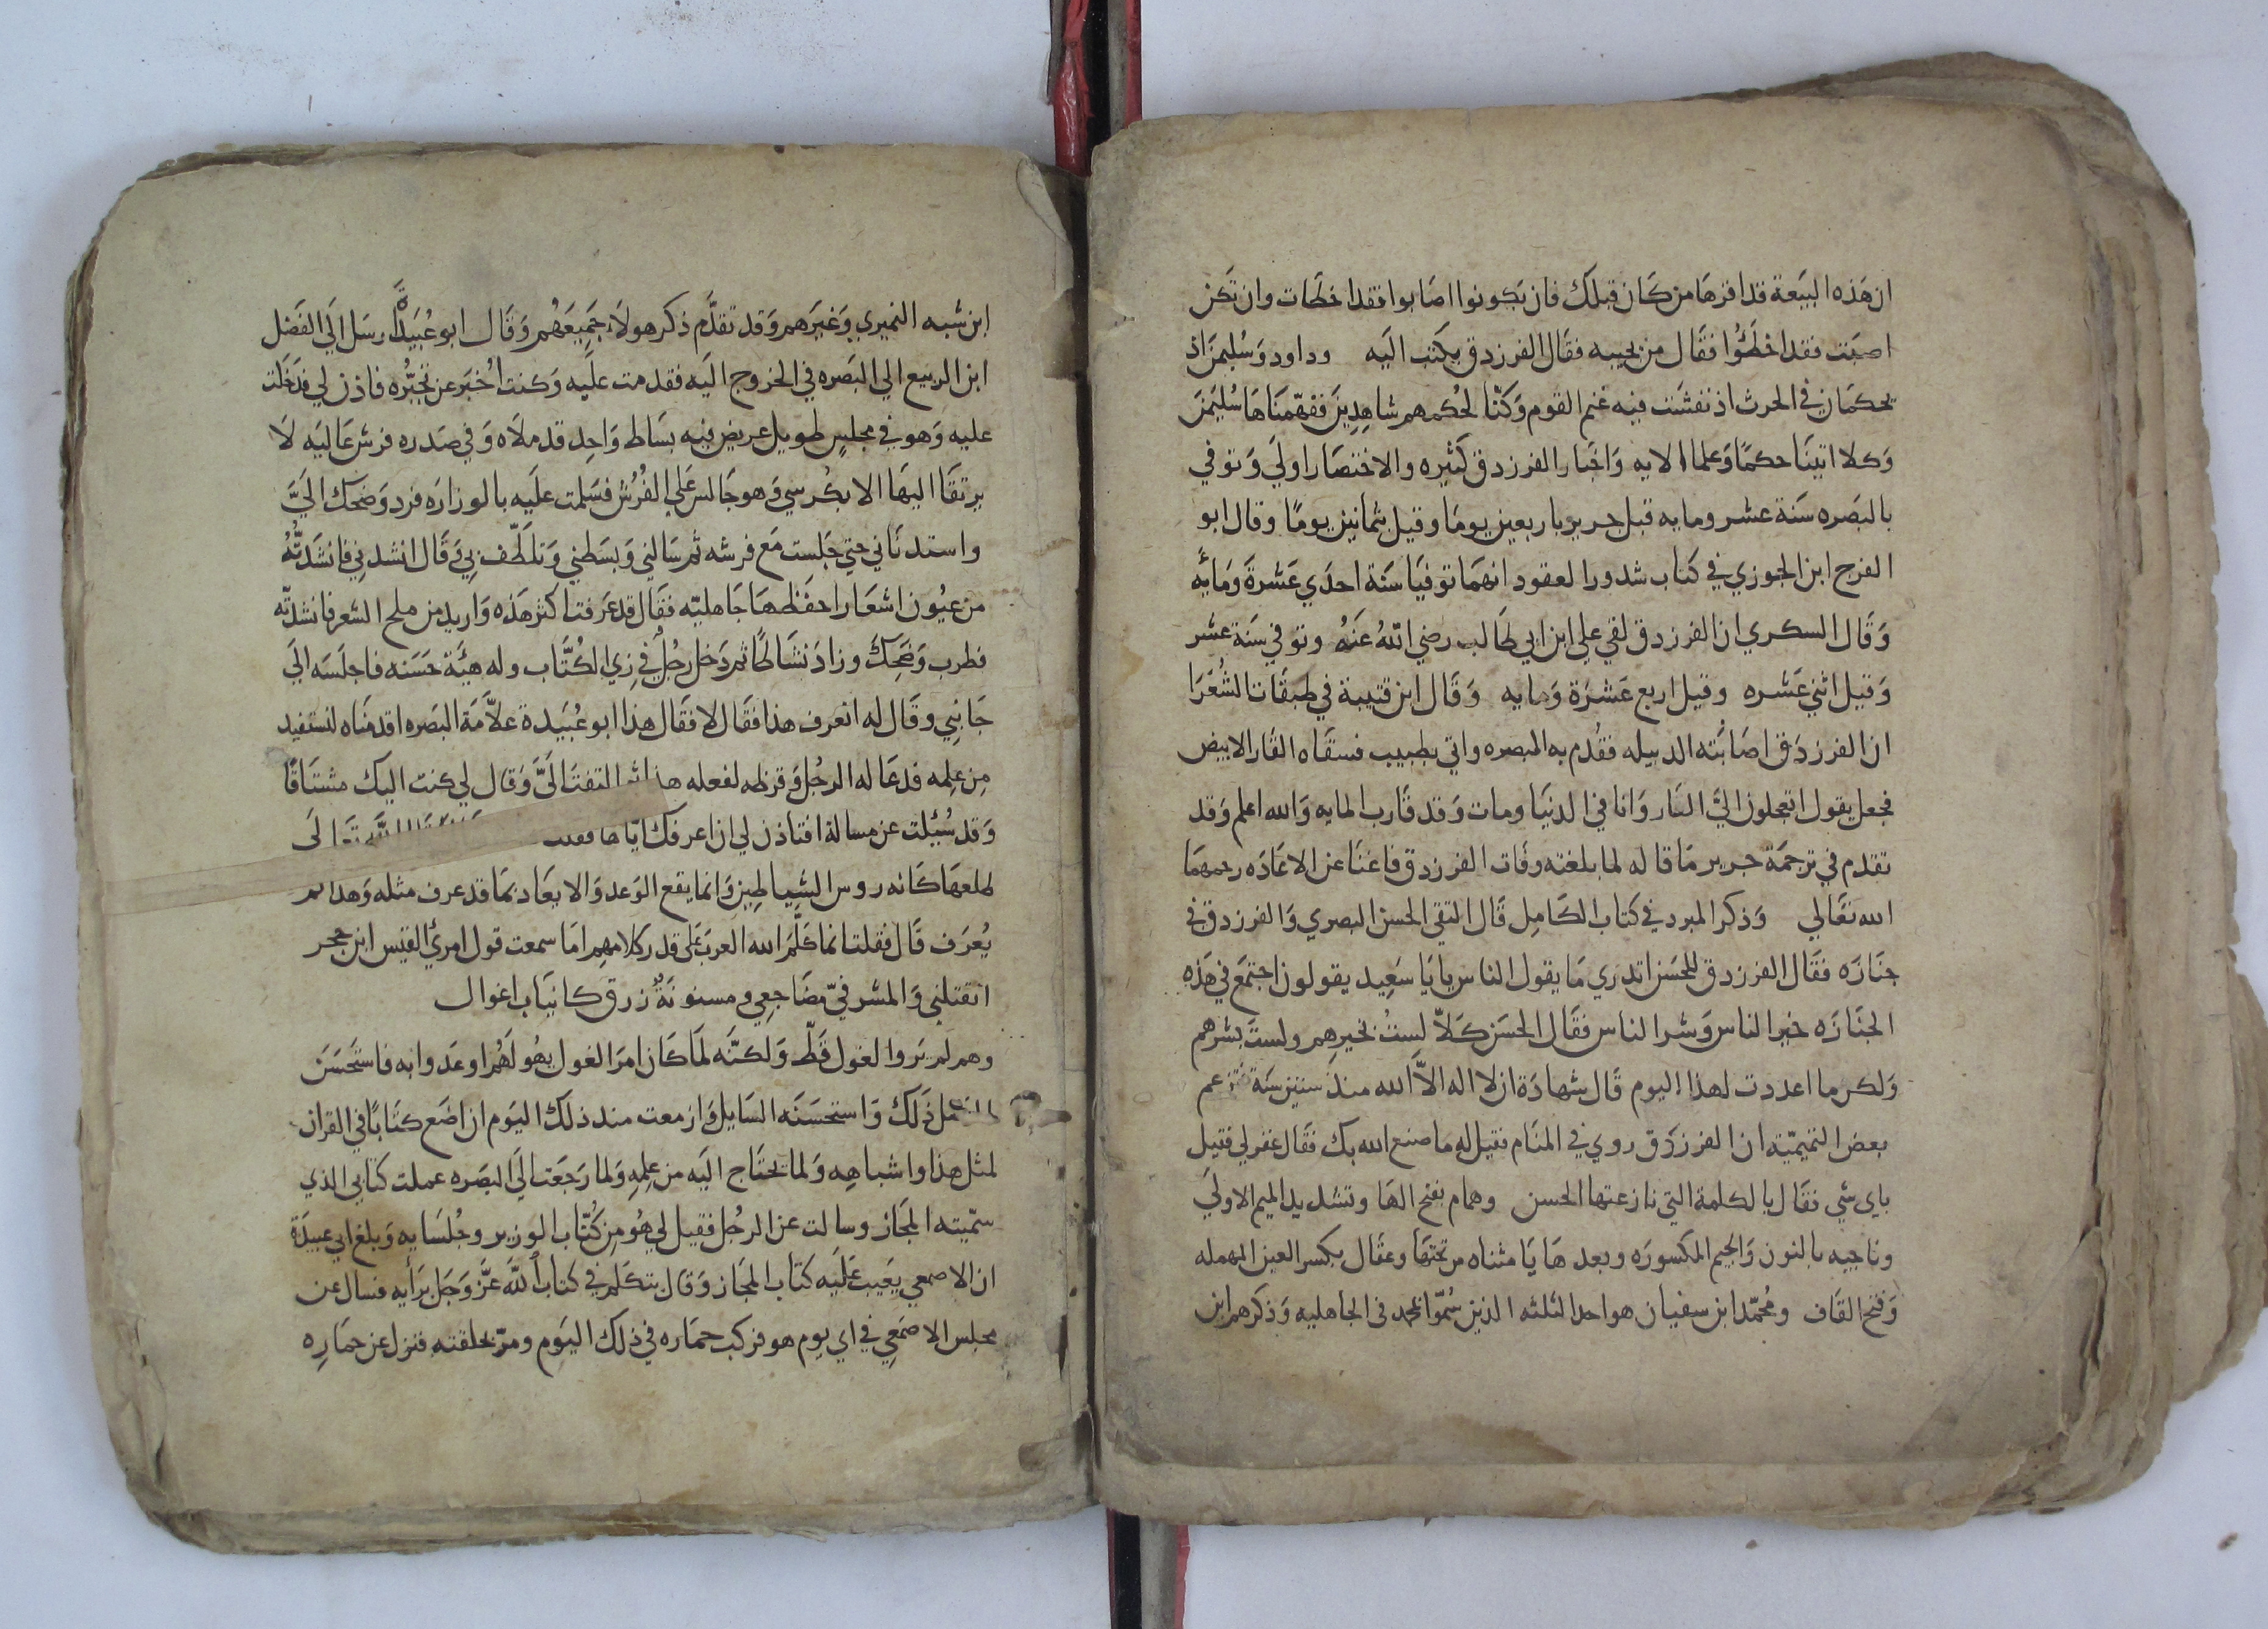 ان هَذه البيَعة قد اقرهَا من كَان قبلَك فان يَكونوا اصَابوا فقد اخطَات وان تَكن
اصبَت فقد اخطَئُوا فقَال من يجيبه فقَال الفرزدق يكتب اليَه وداود وَسُليمنَ اذ
يحكمَان في الحرث اذ نفشَت فيه غنم القوم وَكنّا لحُكمهم شاهِدِينَ ففهّمنَاهَا سُليَمنَ
وَكلا اتينَا حكمًا وَعلما الايه وَاخبَار الفرزدق كَثيره والاختصَار اولَي وَتوفي
بالبَصَره سَنَة عشر ومايه قبل جرير باربعين يومًا وقيل ثمانين يومًا وقال ابو
الفرج ابن الجوزي في كتاب شدور العقود انهمَا توفيَا سَنَة احدَي عَشرةَ وَمَايَه
وَقَال السكري ان الفرزدق لقي علي ابن ابي طَالب رضي اللهُ عَنهُ وتوفي سَنَة عشر
وَقيل اثني عَشره وقيل اربع عَشرَة وَمايه وَقَال ابن قتيبة في طبقَات الشُعَرَا
ان الفرزدَق اصَابَته الدبيله فقُدم به البصره واتي بطبيب فسقَاه القَار الابيض
فجعل يقول اتعجلون اليَّ النَار وَانا في الدنيَا ومات وَقد قَارب المايه وَالله اعلم وَقد
تقدم في ترجمَة جرير مَا قاله لما بلغته وفَات الفرزدق فاغنَا عن الاعَادَه رحمهمَا
الله تعَالي وَذكر المبرد في كتاب الكَامِل قَال التقي الحسن البصري وَالفرزدق في
جنَازَه فقَال الفرزدق للحَسَن اتدري مَا يقول الناس يابَا سَعِيد يقولون اجتمَع في هَذه
الجنَازَه خير الناس وَشر الناس فقَال الحَسَن كَلاّ لستُ بخيرهِم ولستَ بشرهم
وَلكن ما اعددت لهذا اليوم قَال شهادَة ان لا اله الاّ الله منذ ستين سَنَة فتزعم
بعض التميميّه ان الفرزدَق روي في المنَام فقيل له ما صنع الله بك فقَال غفر لي فقيل
باي شي فقَال بالكلمة التي نازعتها الحسن وهمام بفتح الهَا وتشديد الميم الاولَي
وناجيه بالنون وَالجيم المكسورَه وبعدهَا يَا مثناه من تحتهَا وعقَال بكسر العين المهمله
وَفتح القَاف ومُحمّد ابن سفيان هو احد الثلثه الذين سُمّوا بمحمد في الجاهليه وَذكرهم ابن
ابن شبه النميري وَغيَرهم وَقد تقدَّم ذكر هولاَ جَمِيعَهُم وَقَال ابو عُبَيدَة ارسَل الَي الفَضل
ابن الربيع الي البَصَره في الخروج اليَه فقدمت عليه وَكنت اُخبَر عن تجبُّره فاذن لي فدَخَلت
عليه وَهو في مجلسٍ طويل عريض فيه بسَاط وَاحِد قد ملاَه وَفي صَدره فرش عَاليَه لاَ
يرتقَا اليهَا الا بكُرسي وَهو جَالس عَلي الفُرُش فسَلمت عليَه بالوزارَه فرد وَضحَك اليَّ
واستدنَاني حتي جَلست مَع فرشه ثم سَالني وَبسَطني وَتلَطّف بي وَقَال انشدني فانشَدتُهُ
من عيُون اشعَار احفَظهَا جَاهليّه فقَال قد عَرفت اكثر هَذه وَاريد من ملح الشعر فانشدتّه
فطرب وَضحِكَ وزادَ نشَاطًا ثم دَخل رجُل في زِي الكُتَّاب وله هيَئة حَسَنه فاجلَسَه الَي
جَانِبي وقَال له اتعرف هذا فقَال لا فقَال هذا ابو عُبَيدة علاَّمَة البَصَره اقدمنَاه لنستفيد
مِن عِلمِه فدعَا له الرجُل وَقرظه لفعله هذا ثم التفت اليَّ وَقال لي كنت اليك مشتَاقًا
وَقد سُئِلت عن مسالة افتاذن لي ان اعرفك ايّاها فقلت الَي
طلعهَا كَانه روس الشيَاطِين وَانما يقع الوَعد وَالايعَاد بمَا قد عرف مثله وَهذا لم
يُعرَف قَال فقلت انما كَلّمَ الله العرَب عَلي قدر كلامهِم امَا سمعت قول امرئ القيَس ابن حجر
اتقتلني وَالمشرفيّ مضَاجعي ومسنونَةٌ زرق كانيَاب اغوال
وهم لم يَروا الغول قَطّ وَلكنّه لمَا كَان امرَ الغول يهُولُهم اوعَدوا به فاستَحسَنَ
الفضل ذَلكَ وَاستحسَنَه السَايل وَازمعت منذ ذلك اليَوم ان اضَع كتَابًا في القران
لمثل هذا واشبَاهِه وَلما يحتَاج اليَه من عِلمِهِ وَلما رَجَعت الَي البَصَره عملت كتَابي الذي
سمّيته المجَاز وسالت عن الرجُل فقيل لي هُو من كُتّاب الوزير وجُلسَايه وَبلغ ابي عبيدَة
ان الاصمعي يَعَيب عَلَيَه كتَاب المجَاز وَقال يتكَلم في كتاب اللَّه عَزَّ وَجَل برَأيه فسال عن
مجلس الاصمَعِي في اي يوم هو فركب حمَاره في ذلك اليَوم ومرّ بحلقته فنزل عن حمَارِه